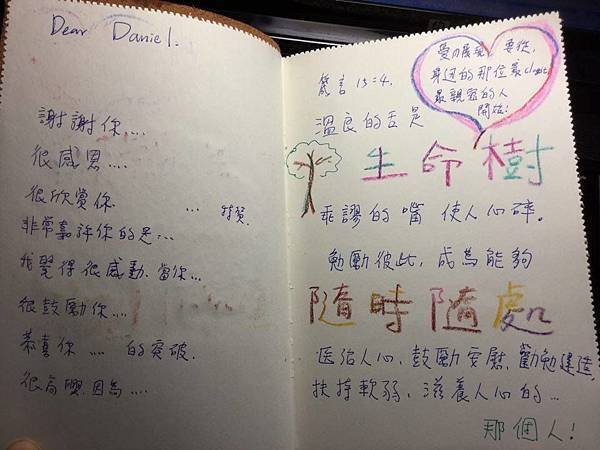 Dear Daniel.
謝謝你....
很感恩....
很欣賞你 ... 特質.
非常嘉許你的是....
我覺得很感動.當你...
很鼓勵你....
恭喜你 .... 的突破.
很高興.因為....
愛的展現, 要從,
身邊的那位最close
最親密的人
開始!
箴言 15:4.
溫良的舌是
生命樹
乖謬的嘴 使人心碎.
勉勵彼此, 成為能夠
隨時隨處
医治人心, 鼓勵安慰, 勸勉建造,
扶持軟弱, 滋養人心的...
那個人!